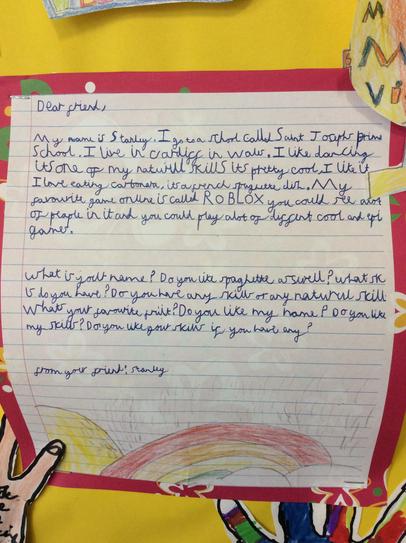 Dear friend,
My name is Stanley. I go to a school called Saint Joseph prime
School. I live in cardiff in wals. I like dancing
its one of my naturul skills its pretty cool. I like it
I love eating carbonara, its a french spaguette dish. My
favourite game online is called ROBLOX you could see alot
of people in it and you could play alot of diffrent cool and epi
games.
What is your name? Do you like spaghette aswell? what sk
is do you have? Do you have any skill or any naturul skill
Whats your favourite fruit? Do you like my name? Do you like
my skills? Do you like your skills if you have any?
from your friend: Stanley